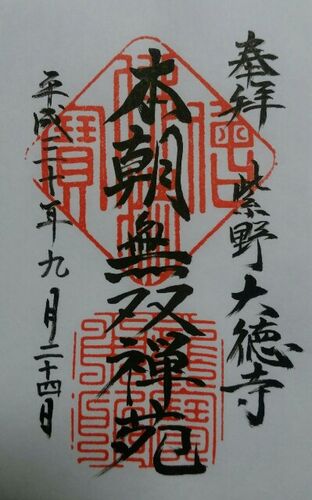 奉拝 紫野大徳寺
本朝無双禅苑
平成三十年九月二十四日